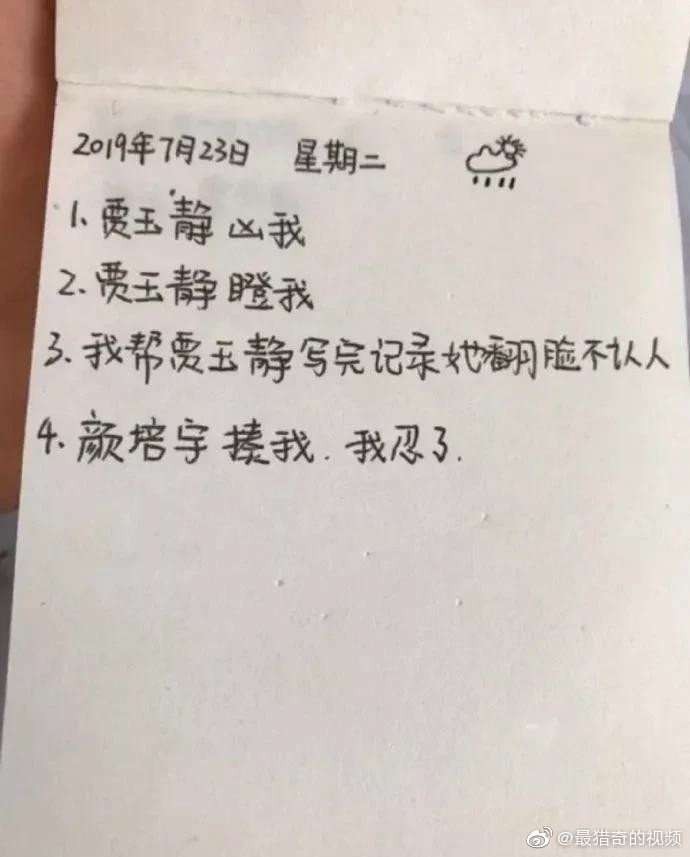 2019年7月23日 星期二
1. 贾玉静 凶我
2. 贾玉静 瞪我
3. 我帮贾玉静写完记录她翻脸不认人
4. 颜培宇 揍我. 我忍了.
@最猎奇的视频